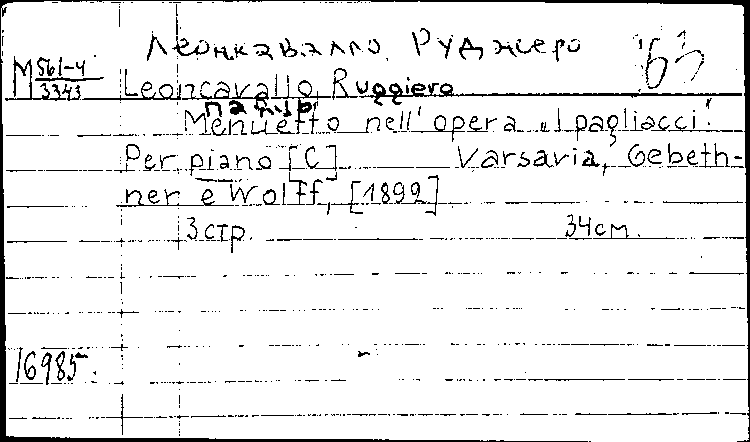 Леонкавалло, Руджеро
'63
М 561-4
3343
Leoncavallo, Ruggiero
Menuetto nell' opera „I pagliacci".
Per piano [C] Varsavia, Gebeth-
ner e Wolff, [1892]
3 стр. 34 см.
16985.